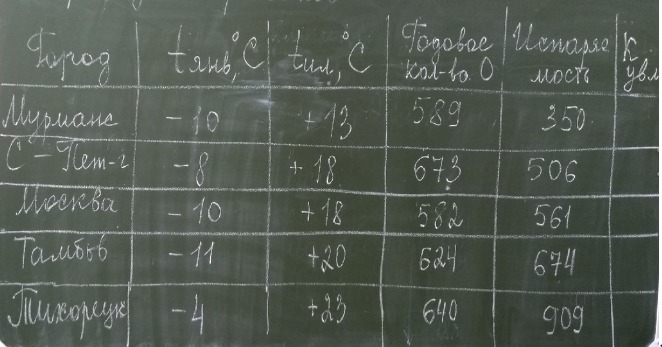 Город t янв, °C t июл, °C Годовое кол-во О Испаряе мость К увл
Мурманс -10 +13 589 350
С-Пет-г -8 +18 673 506
Москва -10 +18 582 561
Тамбов -11 +20 624 674
Тихорецк -4 +23 640 909